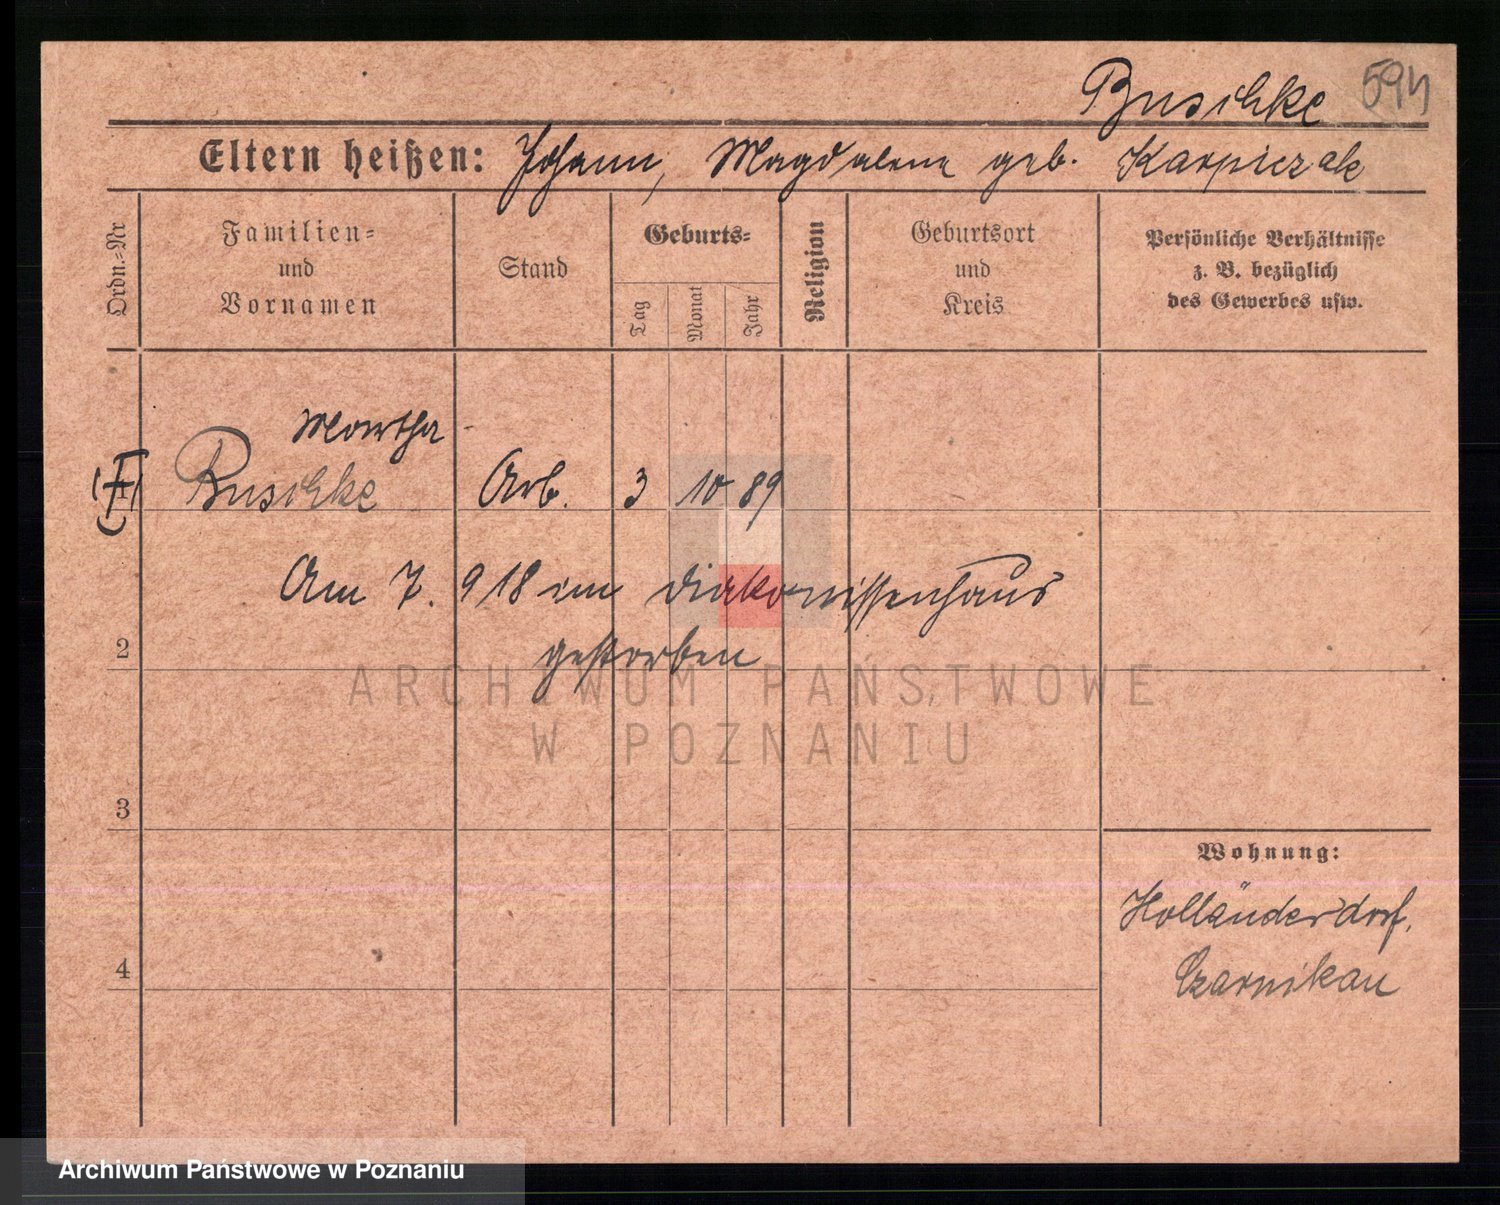 Buschke 594
Eltern heißen: Johann, Magdalena geb. Karpiczak
Ordn.-Nr
Familien-
und
Vornamen
Stand
Geburts-
Tag
Monat
Jahr
Religion
Geburtsort
und
Kreis
Persönliche Verhältnisse
z. B. bezüglich
des Gewerbes usw.
Martha
1 Buschke Arb. 3 10 89
Am 7. 9 18 im Diakonissenhaus
2 gestorben
ARCHIWUM PAŃSTWOWE
W POZNANIU
3
Wohnung:
Holländerdorf,
4 Czarnikau
Archiwum Państwowe w Poznaniu